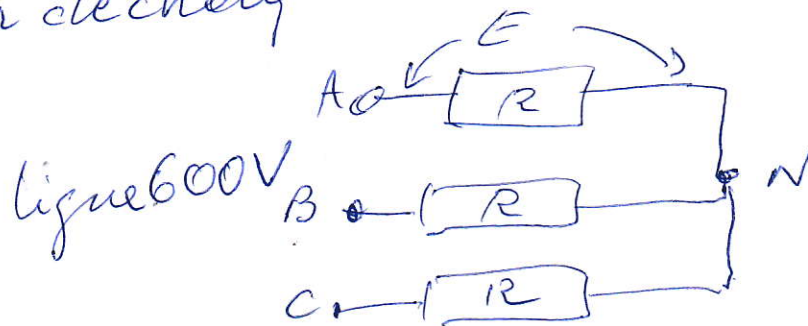 E
A R
ligne 600V
N
B R
C R